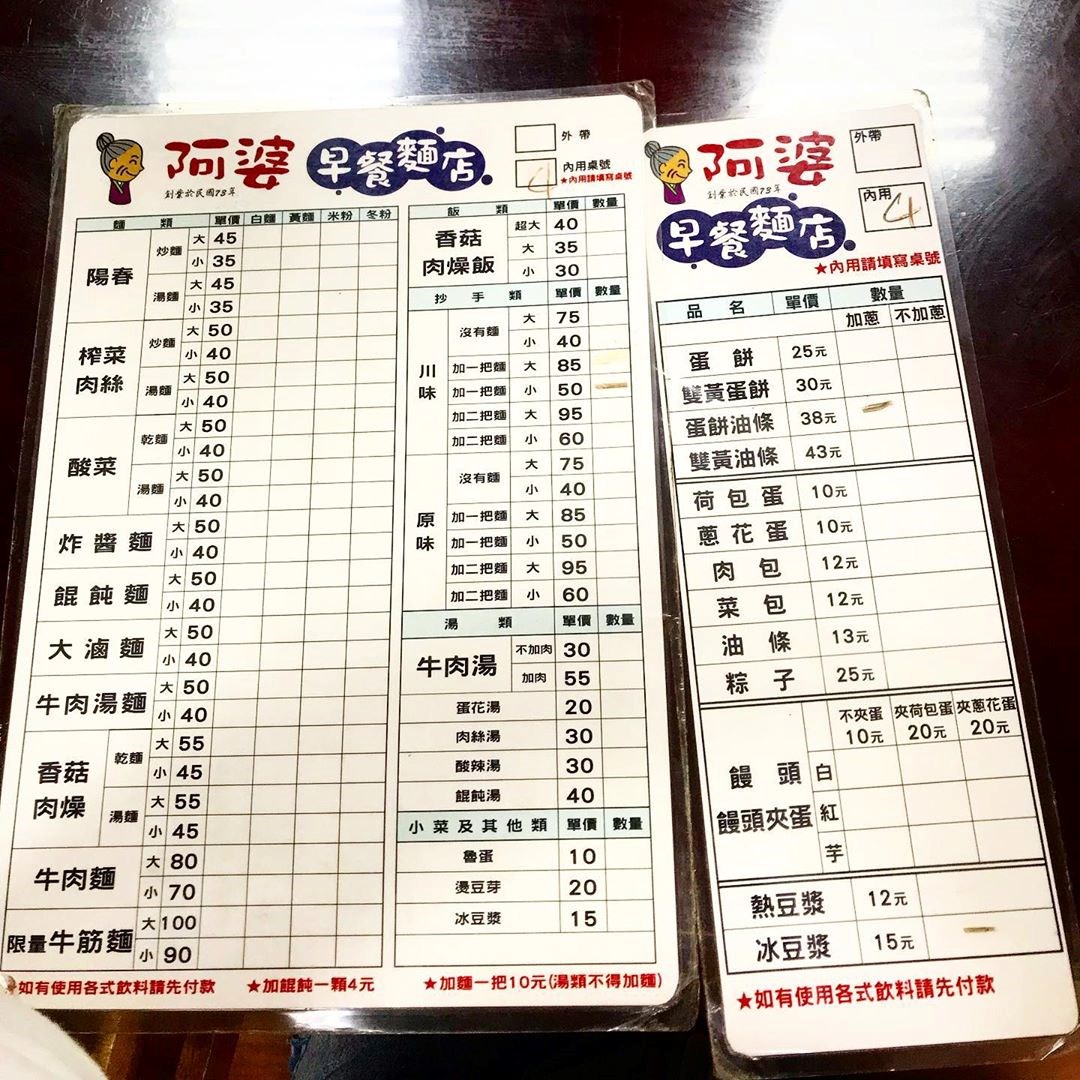 阿婆 早餐麵店
創業於民國73年
外帶
內用桌號
★內用請填寫桌號
4
麵類 單價 白麵 黃麵 米粉 冬粉
陽春 炒麵 大 45
小 35
湯麵 大 45
小 35
榨菜肉絲 炒麵 大 50
小 40
湯麵 大 50
小 40
酸菜 乾麵 大 50
小 40
湯麵 大 50
小 40
炸醬麵 大 50
小 40
餛飩麵 大 50
小 40
大滷麵 大 50
小 40
牛肉湯麵 大 50
小 40
香菇肉燥 乾麵 大 55
小 45
湯麵 大 55
小 45
牛肉麵 大 80
小 70
限量牛筋麵 大 100
小 90
飯類 單價 數量
香菇肉燥飯 超大 40
大 35
小 30
抄手類 單價 數量
川味 沒有麵 大 75
小 40
加一把麵 大 85
加一把麵 小 50
加二把麵 大 95
加二把麵 小 60
原味 沒有麵 大 75
小 40
加一把麵 大 85
加一把麵 小 50
加二把麵 大 95
加二把麵 小 60
湯類 單價 數量
牛肉湯 不加肉 30
加肉 55
蛋花湯 20
肉絲湯 30
酸辣湯 30
餛飩湯 40
小菜及其他類 單價 數量
魯蛋 10
燙豆芽 20
冰豆漿 15
★如有使用各式飲料請先付款 ★加餛飩一顆4元 ★加麵一把10元(湯類不得加麵)
阿婆
創業於民國73年
早餐麵店
外帶
內用 4
★內用請填寫桌號
品名 單價 數量
加蔥 不加蔥
蛋餅 25元
雙黃蛋餅 30元
蛋餅油條 38元
雙黃油條 43元
荷包蛋 10元
蔥花蛋 10元
肉包 12元
菜包 12元
油條 13元
粽子 25元
不夾蛋 夾荷包蛋 夾蔥花蛋
10元 20元 20元
饅頭 白
饅頭夾蛋 紅
芋
熱豆漿 12元
冰豆漿 15元
★如有使用各式飲料請先付款